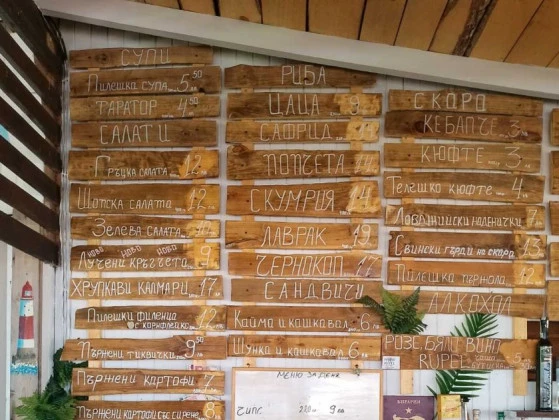 СУПИ
Пилешка супа 5.50
ТАРАТОР 4.50
САЛАТИ
Гръцка салата 12
Шопска салата 12
Зелева салата
НОВО НОВО НОВО
Лучени кръгчета 9
ХРУПКАВИ КАЛМАРИ 17
Пилешки филенца 12
с корнфлейкс
Пържени тиквички 9.50
Пържени картофи 7
Пържени картофи със сирене 8
РИБА
ЦАЦА 9
САФРИД
ПОПЧЕТА 14
СКУМРИЯ 14
ЛАВРАК 19
ЧЕРНОКОП 17
САНДВИЧИ
Кайма и кашкавал 6
Шунка и кашкавал 6
МЕНЮ ЗА ДЕНЯ
Чипс 220 9
СКАРА
КЕБАПЧЕ 3
КЮФТЕ 3
Телешко кюфте 4
Ловджийски наденички 7
Свински гърди на скара 13
Пилешка пържола 12
АЛКОХОЛ
РОЗЕ, БЯЛО ВИНО
RUPEE чаша 5